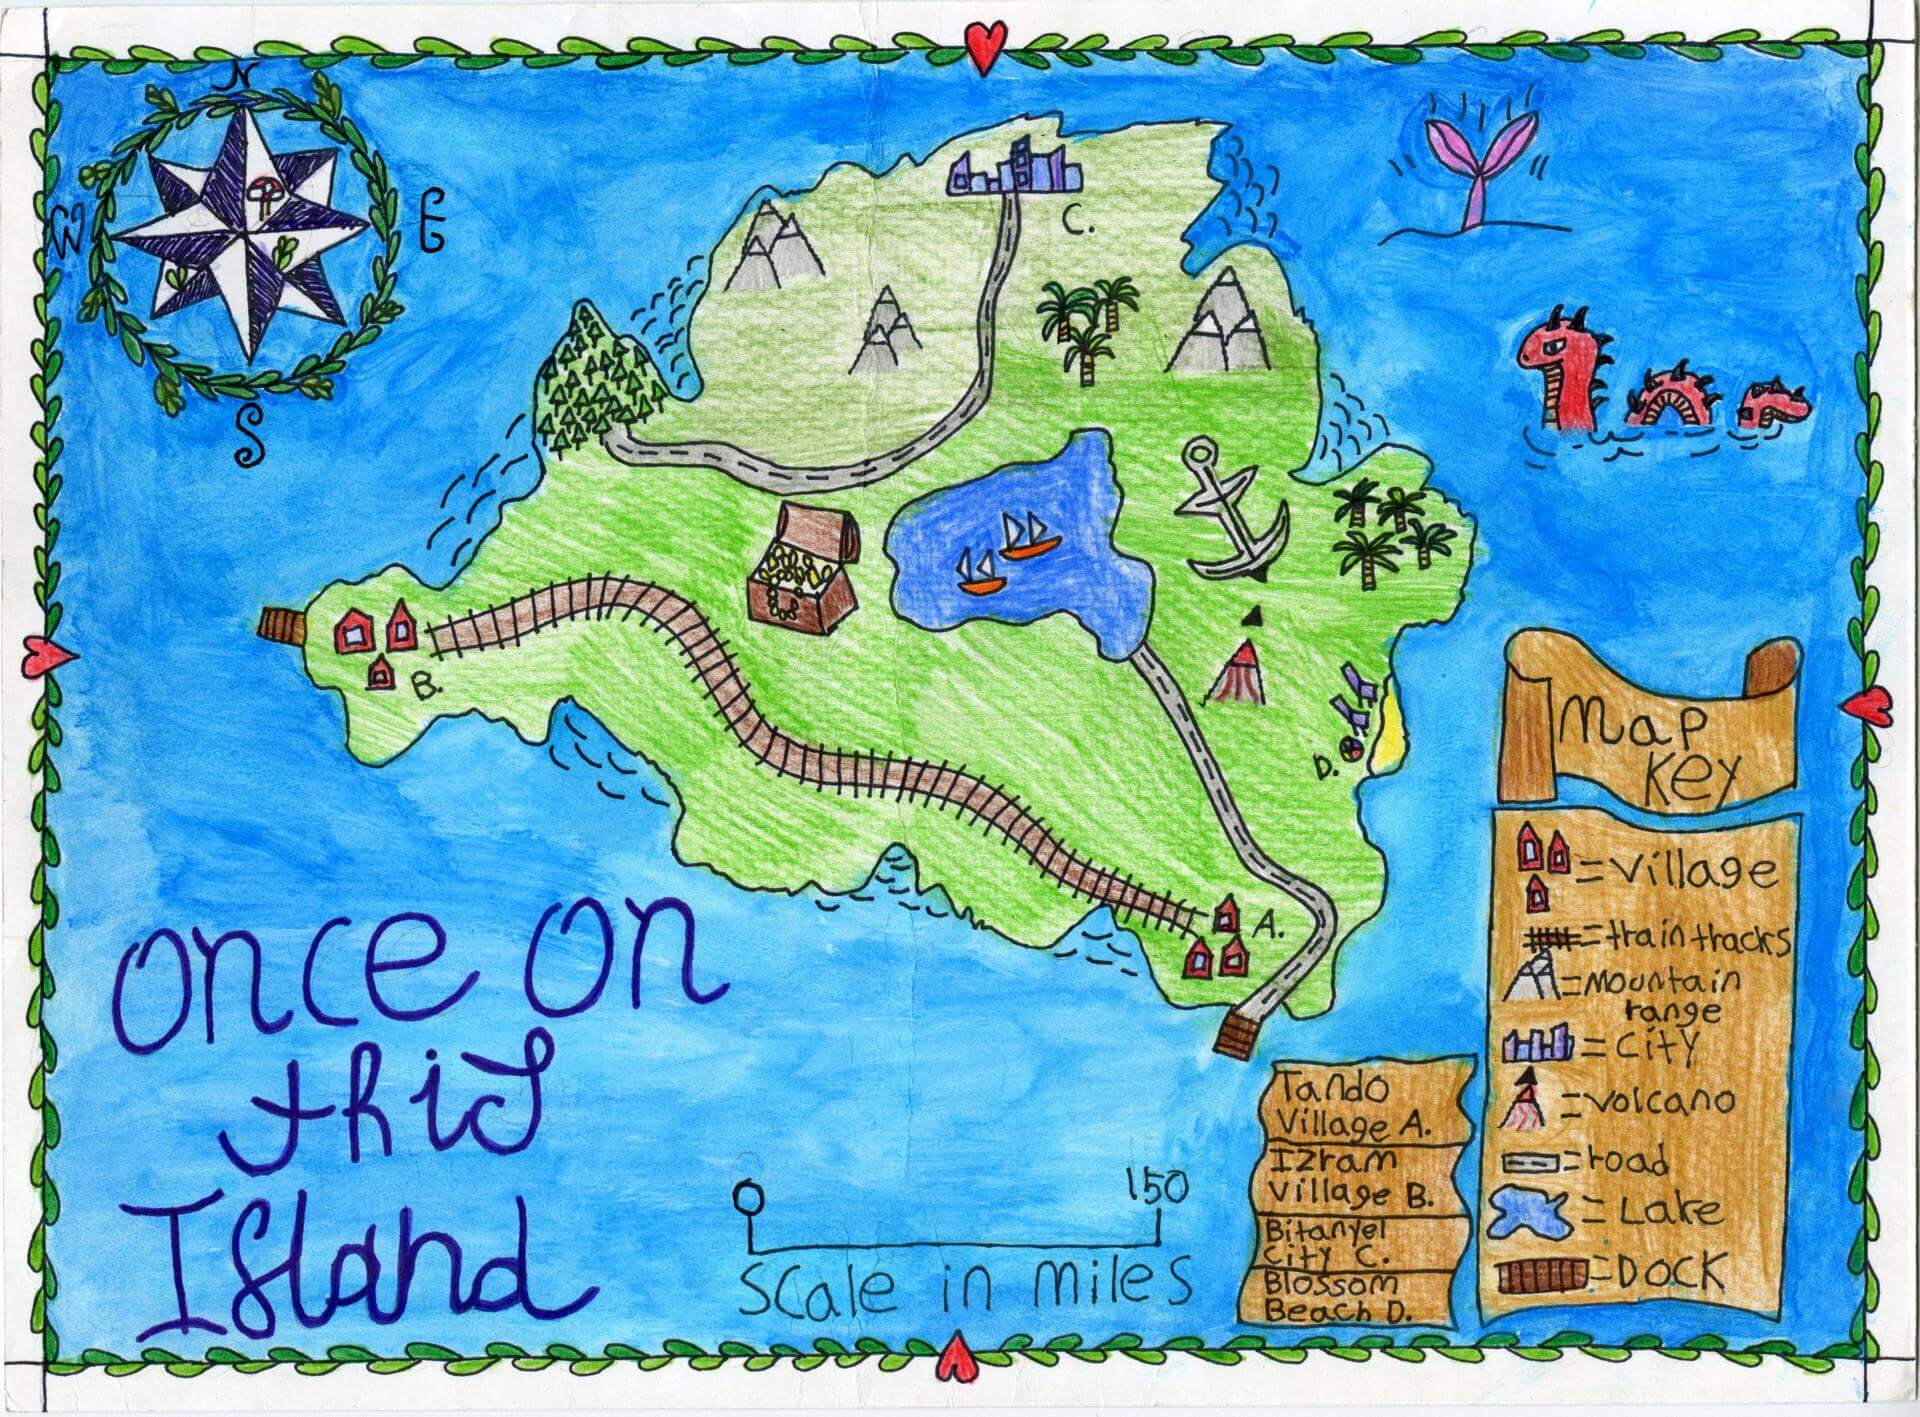 N
W
E
S
C.
B.
D.
A.
Map
Key
=Village
=train tracks
=Mountain
range
=City
=volcano
=road
=Lake
=DOCK
once on
this
Island
0 150
Scale in miles
Tando
Village A.
Izram
Village B.
Bitanyel
City C.
Blossom
Beach D.